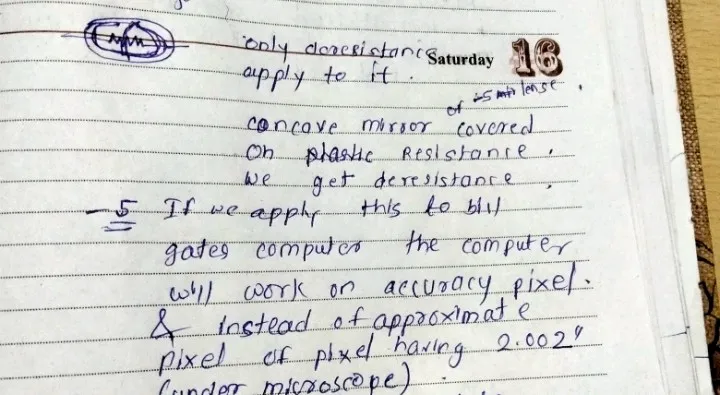 only deresistance Saturday 16
apply to it .
of -5 lense .
concave mirror covered
on plastic Resistance .
we get deresistance .
-5 If we apply this to bill
gates computer the computer
will work on accuracy pixel .
& instead of approximate
pixel of pixel having 2.002"
(under microscope)